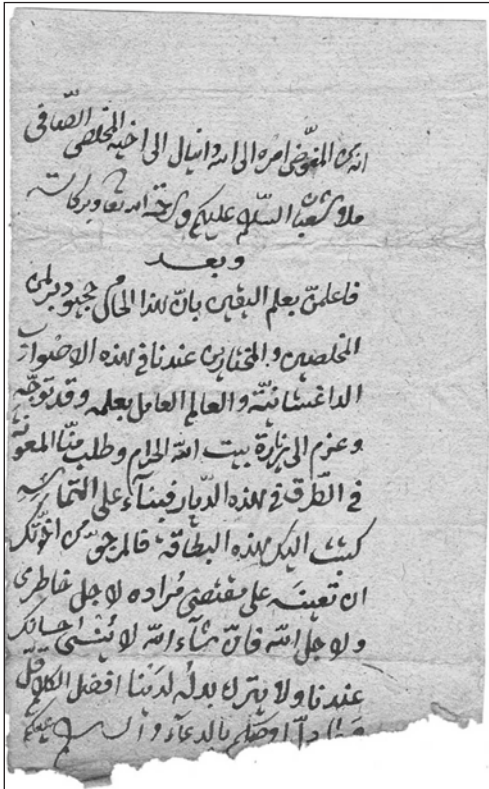 من المفوّض امره الى الله دانيال الى اخيه المخلص الصّافى
ملا شعبان السّلام عليكم ورحمة الله تعا وبركاته
وبعد
فاعلمنّ بعلم اليقين بانّ هذا الحاج
المخلصين والمختارين عندنا فى هذه الاضواب
الداغستانيّة والعالم العامل بعلمه وقد توجّه
وعزم الى زيارة بيت الله الحرام وطلب منّا المعونة
فى الطّرق فى هذه الدّيار فبناءً على التماسه
كتبت اليكم هذه البطاقة فالمرجوّ من اخوّتكم
ان تعينه على مقتضى مُراده لاجل خاطرى
ولاجل الله فانّ شآء الله لا يُنسَى احسانكم
عندنا ولا يترك بدلُه لدَيْنا افضل الكلام قلّ
اوصلكم بالدعآء والسلام عليكم